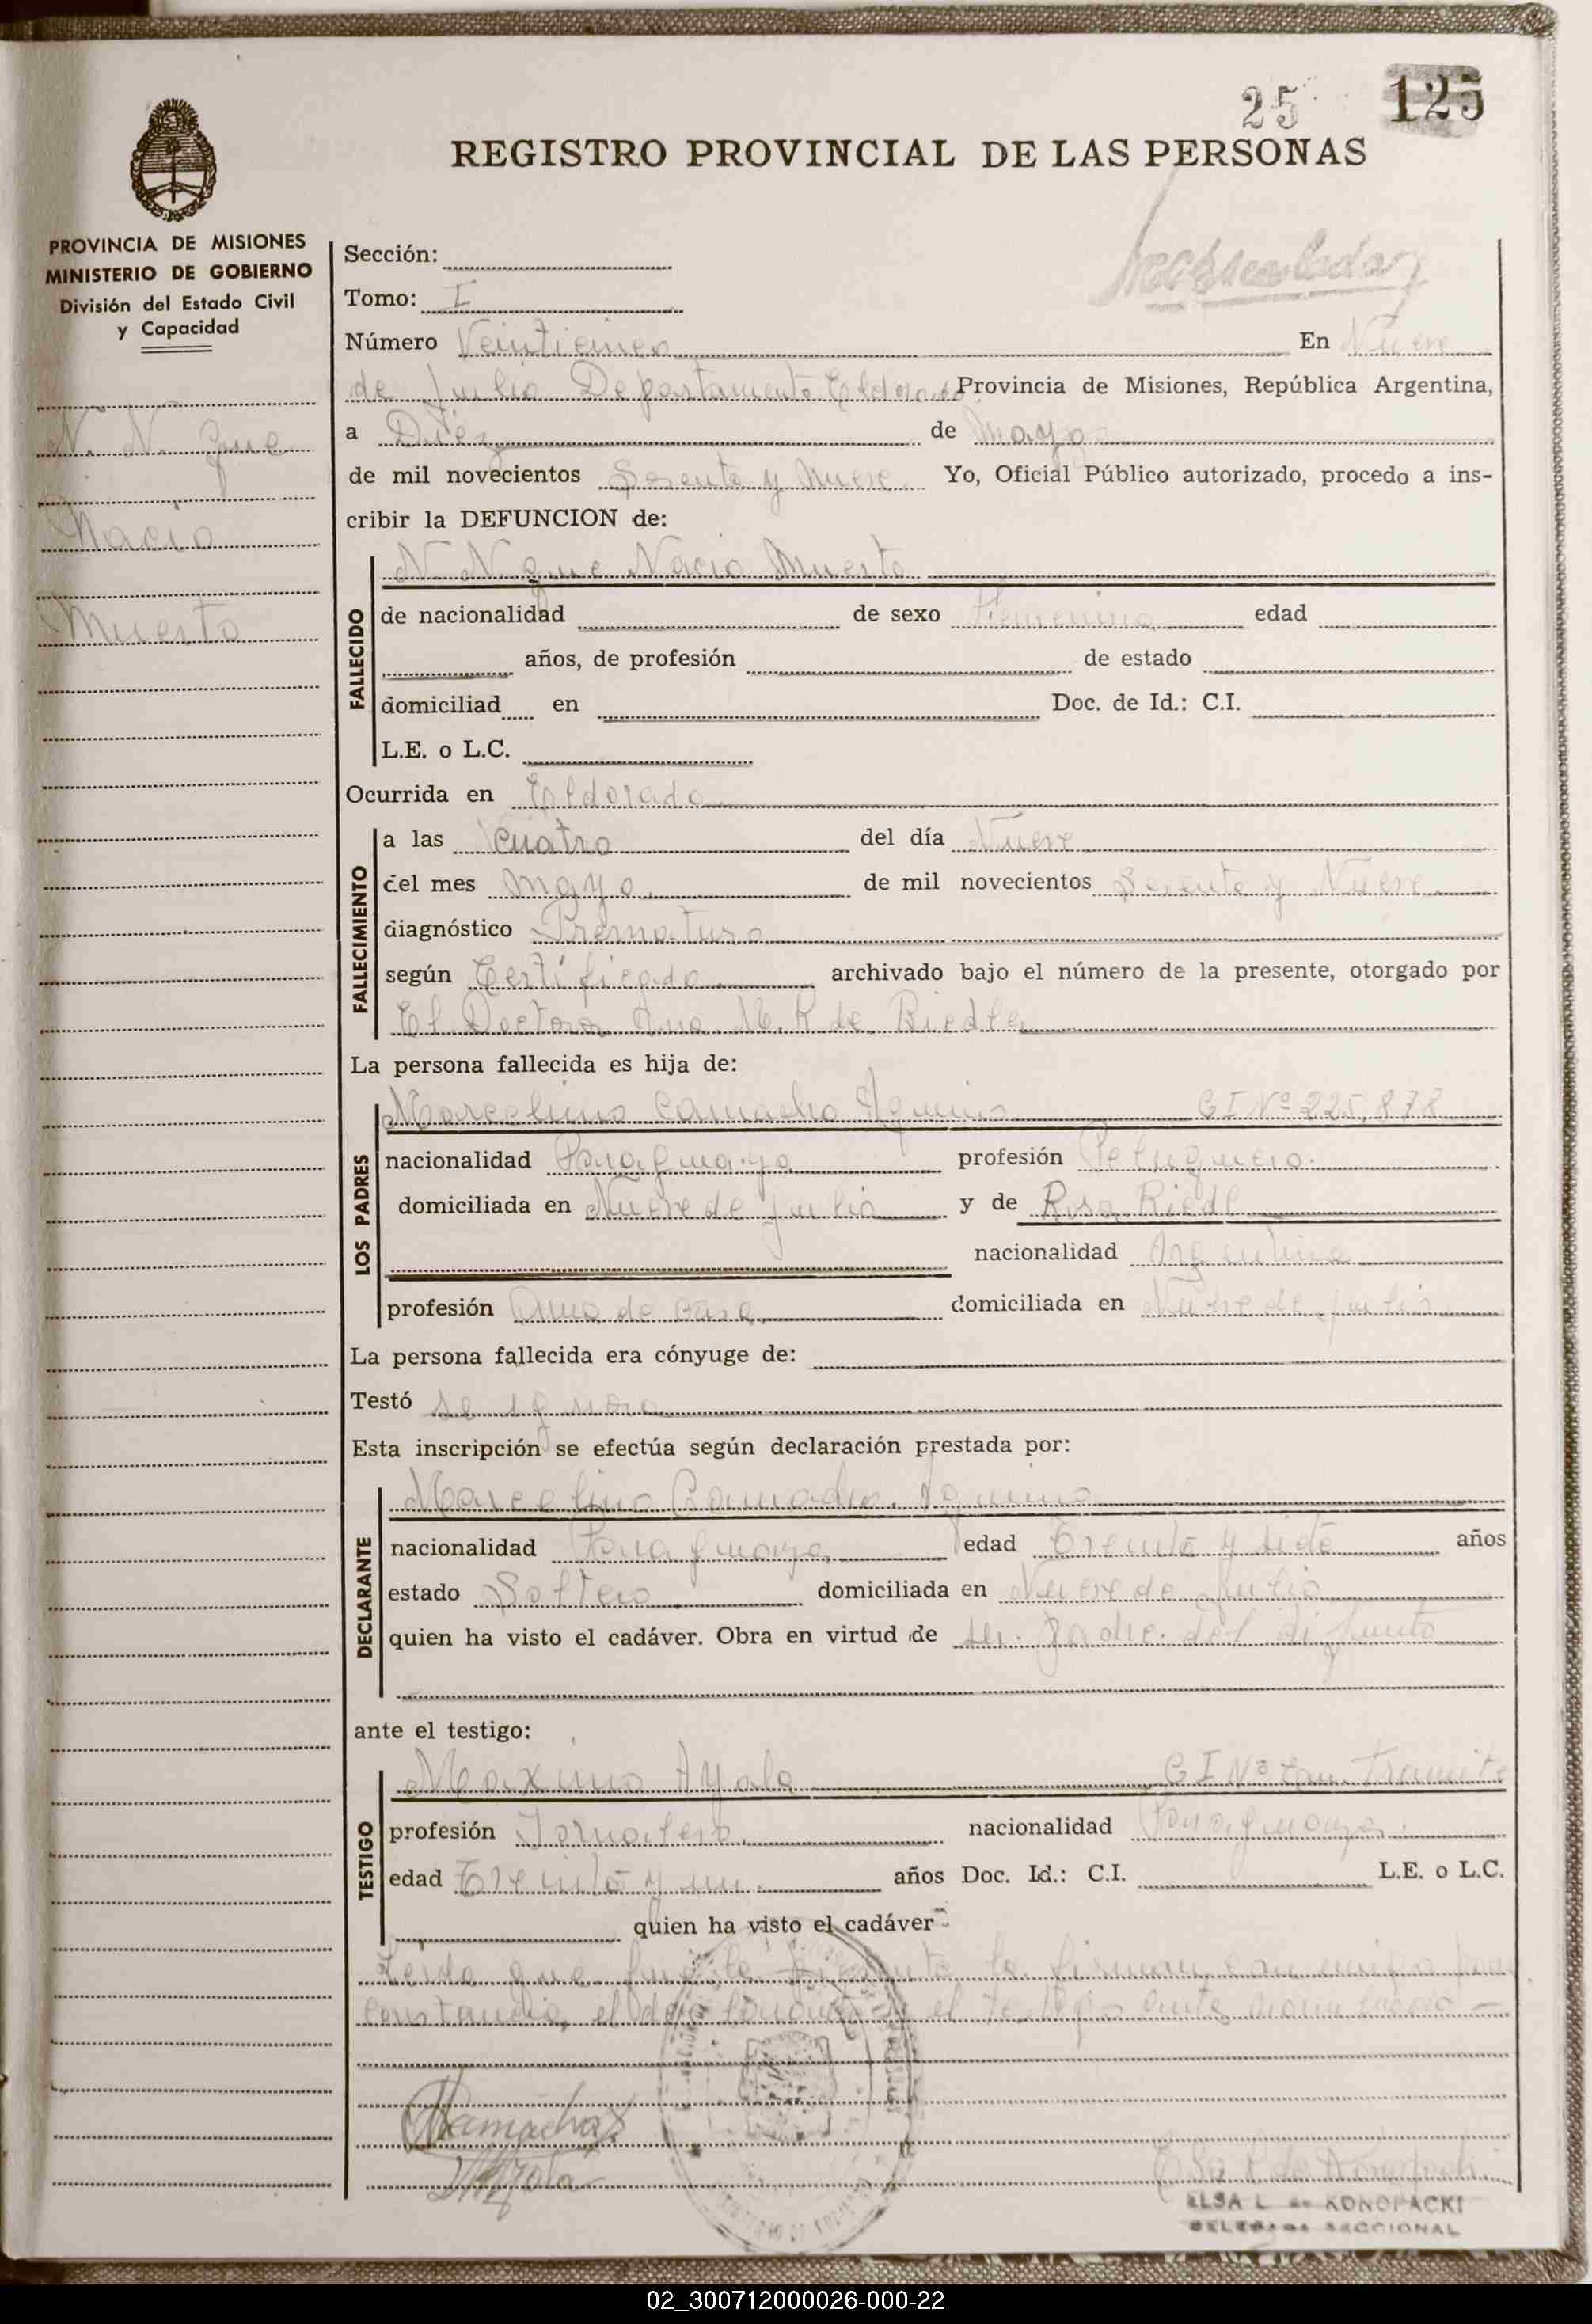 25 125
REGISTRO PROVINCIAL DE LAS PERSONAS
PROVINCIA DE MISIONES
MINISTERIO DE GOBIERNO
División del Estado Civil
y Capacidad
N. N. que
Nacio
Muerto
Sección:
Tomo: I
Número Veinticinco En Nueve
de Julio Departamento Eldorado Provincia de Misiones, República Argentina,
a Diez de Mayo
de mil novecientos Sesenta y Nueve Yo, Oficial Público autorizado, procedo a ins-
cribir la DEFUNCION de:
FALLECIDO
N N que Nacio Muerto
de nacionalidad de sexo Femenino edad
años, de profesión de estado
domiciliad en Doc. de Id.: C.I.
L.E. o L.C.
Ocurrida en Eldorado
FALLECIMIENTO
a las Cuatro del día Nueve
del mes Mayo de mil novecientos Sesenta y Nueve
diagnóstico Prematuro
según Certificado archivado bajo el número de la presente, otorgado por
El Doctora Ana M. R de Riedle
La persona fallecida es hija de:
LOS PADRES
Marcelino Camacho Aquino C I Nº 225,878
nacionalidad Paraguaya profesión Peluquero.
domiciliada en Nueve de Julio y de Rosa Riedl
nacionalidad Argentina
profesión Ama de casa domiciliada en Nueve de Julio
La persona fallecida era cónyuge de:
Testó se ignora
Esta inscripción se efectúa según declaración prestada por:
DECLARANTE
Marcelino Camacho Aquino
nacionalidad Paraguaya edad Treinta y siete años
estado Soltero domiciliada en Nueve de Julio
quien ha visto el cadáver. Obra en virtud de ser Padre del difunto
ante el testigo:
TESTIGO
Maximo Ayala C I Nº en Tramite
profesión Jornalero nacionalidad Paraguaya
edad Treinta y un años Doc. Id.: C.I. L.E. o L.C.
quien ha visto el cadáver
Leida que fue la presente la firman conmigo para
constancia, el declarante y el testigo ante
Camacho
MAyala
ELSA L de KONOPACKI
DELEGADA SECCIONAL
02_300712000026-000-22